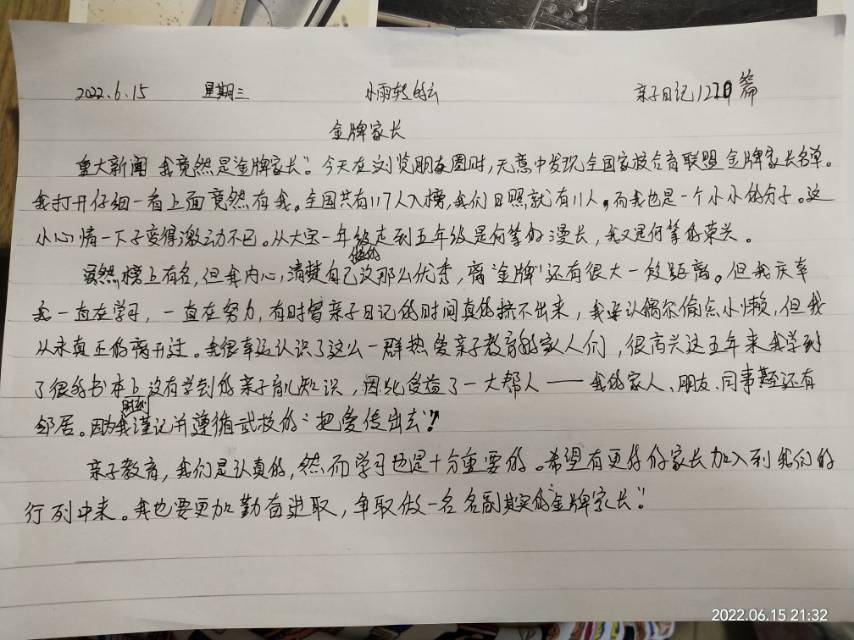 2022.6.15 星期三 小雨转多云 亲子日记1220篇
金牌家长
重大新闻 我竟然是“金牌家长”。今天在浏览朋友圈时,无意中发现全国家校合育联盟 金牌家长名单。
我打开仔细一看上面竟然有我。全国共有117人入榜,我们日照就有11人,而我也是一个小小的分子。这
小心情一下子变得激动不已。从大宝一年级走到五年级是何等的漫长,我又是何等的荣兴。
虽然榜上有名,但我内心,清楚自己没那么优秀,离“金牌”还有很大一段距离。但我庆幸
我一直在学习,一直在努力,有时写亲子日记的时间真的挤不出来,我承认偶尔偷点小懒,但我
从未真正的离开过。我很幸运认识了这么一群热爱亲子教育的家人们,很高兴这五年来我学到
了很多书本上没有学到的亲子育儿知识,因此受益了一大帮人——我的家人、朋友、同事甚至还有
邻居。因为我时刻谨记并遵循武校的“把爱传出去”!
亲子教育,我们是认真的,然而学习也是十分重要的。希望有更多的家长加入到我们的
行列中来。我也要更加勤奋进取,争取做一名名副其实的“金牌家长”!
2022.06.15 21:32